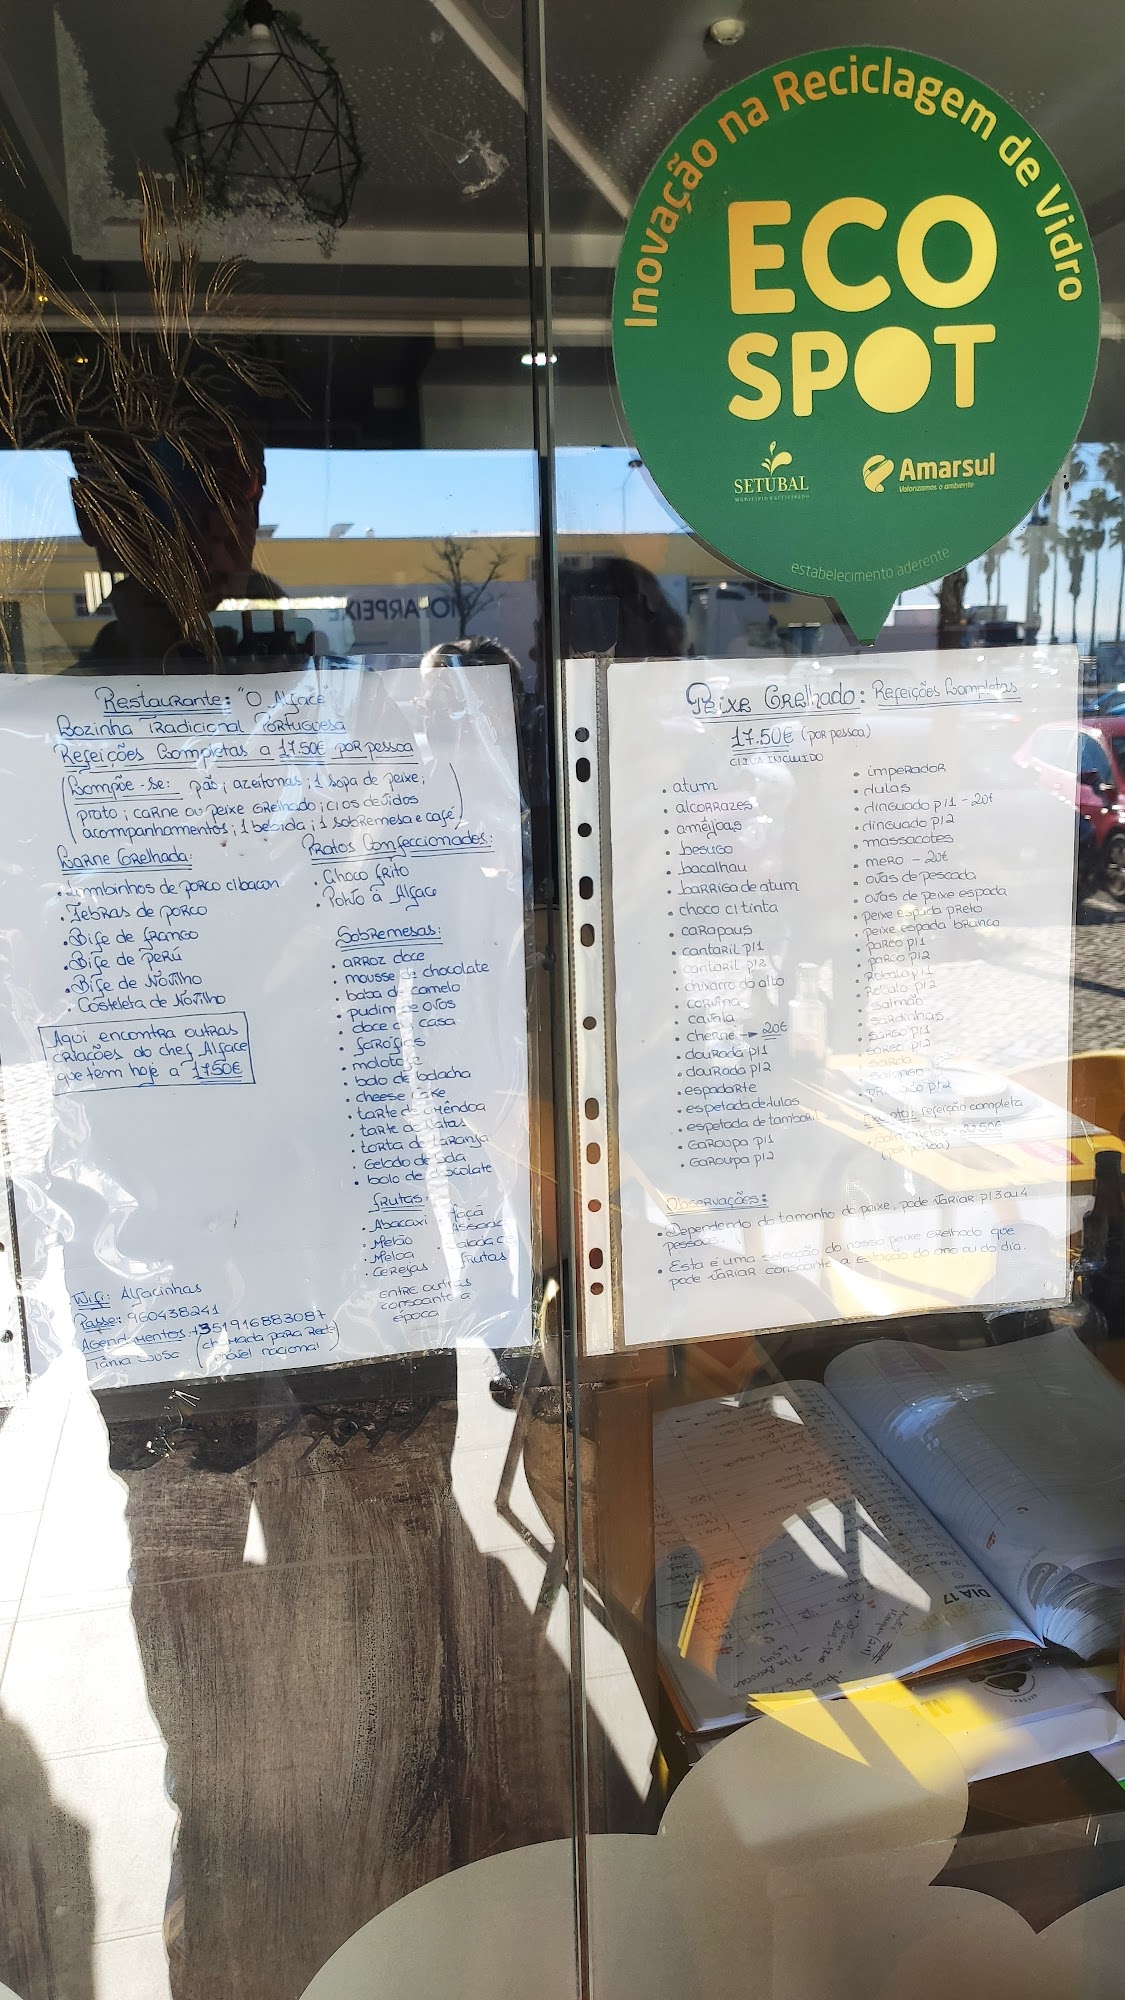 Inovação na Reciclagem de Vidro
ECO
SPOT
SETUBAL
Amarsul
Valorizamos o ambiente
estabelecimento aderente
Restaurante: "O Alface"
Cozinha Tradicional Portuguesa
Refeições Completas a 17.50€ por pessoa
(Compõe-se: pão; azeitonas; 1 sopa de peixe;
prato; carne ou peixe grelhado; c/os devidos
acompanhamentos; 1 bebida; 1 sobremesa e café)
Carne Grelhada:
• Lombinhos de porco c/bacon
• Febras de porco
• Bife de frango
• Bife de Perú
• Bife de Novilho
• Costeleta de Novilho
Aqui encontra outras
criações do chef Alface
que tem hoje a 17.50€
Pratos Confeccionados:
• Choco frito
• Polvo à Alface
Sobremesas:
• arroz doce
• mousse de chocolate
• baba de camelo
• pudim de ovos
• doce da casa
• farófias
• molotofe
• bolo de bolacha
• cheese cake
• tarte de amêndoa
• tarte de natas
• torta de laranja
• Gelado de
• bolo de chocolate
frutas:
• Abacaxi
• Melão
• Meloa
• Cerejas
frutas
entre outras
consoante a
época
Wifi: Alfacinhas
Passe: 960438241
Agendamentos: +351916883087
Tânia Sousa (chamada para rede
móvel nacional)
Peixe Grelhado: Refeições Completas
17.50€ (por pessoa)
c/IVA INCLUIDO
• atum
• alcorrazes
• amêijoas
• besugo
• bacalhau
• barriga de atum
• choco c/tinta
• carapaus
• cantaril p/1
• cantaril p/2
• chixarro do alto
• corvina
• cavala
• cherne → 20€
• dourada p/1
• dourada p/2
• espadarte
• espetada de lulas
• espetada de tamboril
• Garoupa p/1
• Garoupa p/2
• imperador
• lulas
• linguado p/1 - 20€
• linguado p/2
• massacotes
• mero - 20€
• ovas de pescada
• ovas de peixe espada
• peixe espada preto
• peixe espada branco
• pargo p/1
• pargo p/2
• Robalo p/1
• Robalo p/2
• salmão
• sardinhas
• sargo p/1
• sargo p/2
p/2
Exceto: refeição completa
• Salmonetes - 22.50€
(por pessoa)
Observações:
• Dependendo do tamanho do peixe, pode variar p/3 ou 4
pessoas.
• Esta é uma selecção do nosso peixe grelhado que
pode variar consoante a estação do ano ou do dia.
DIA 17